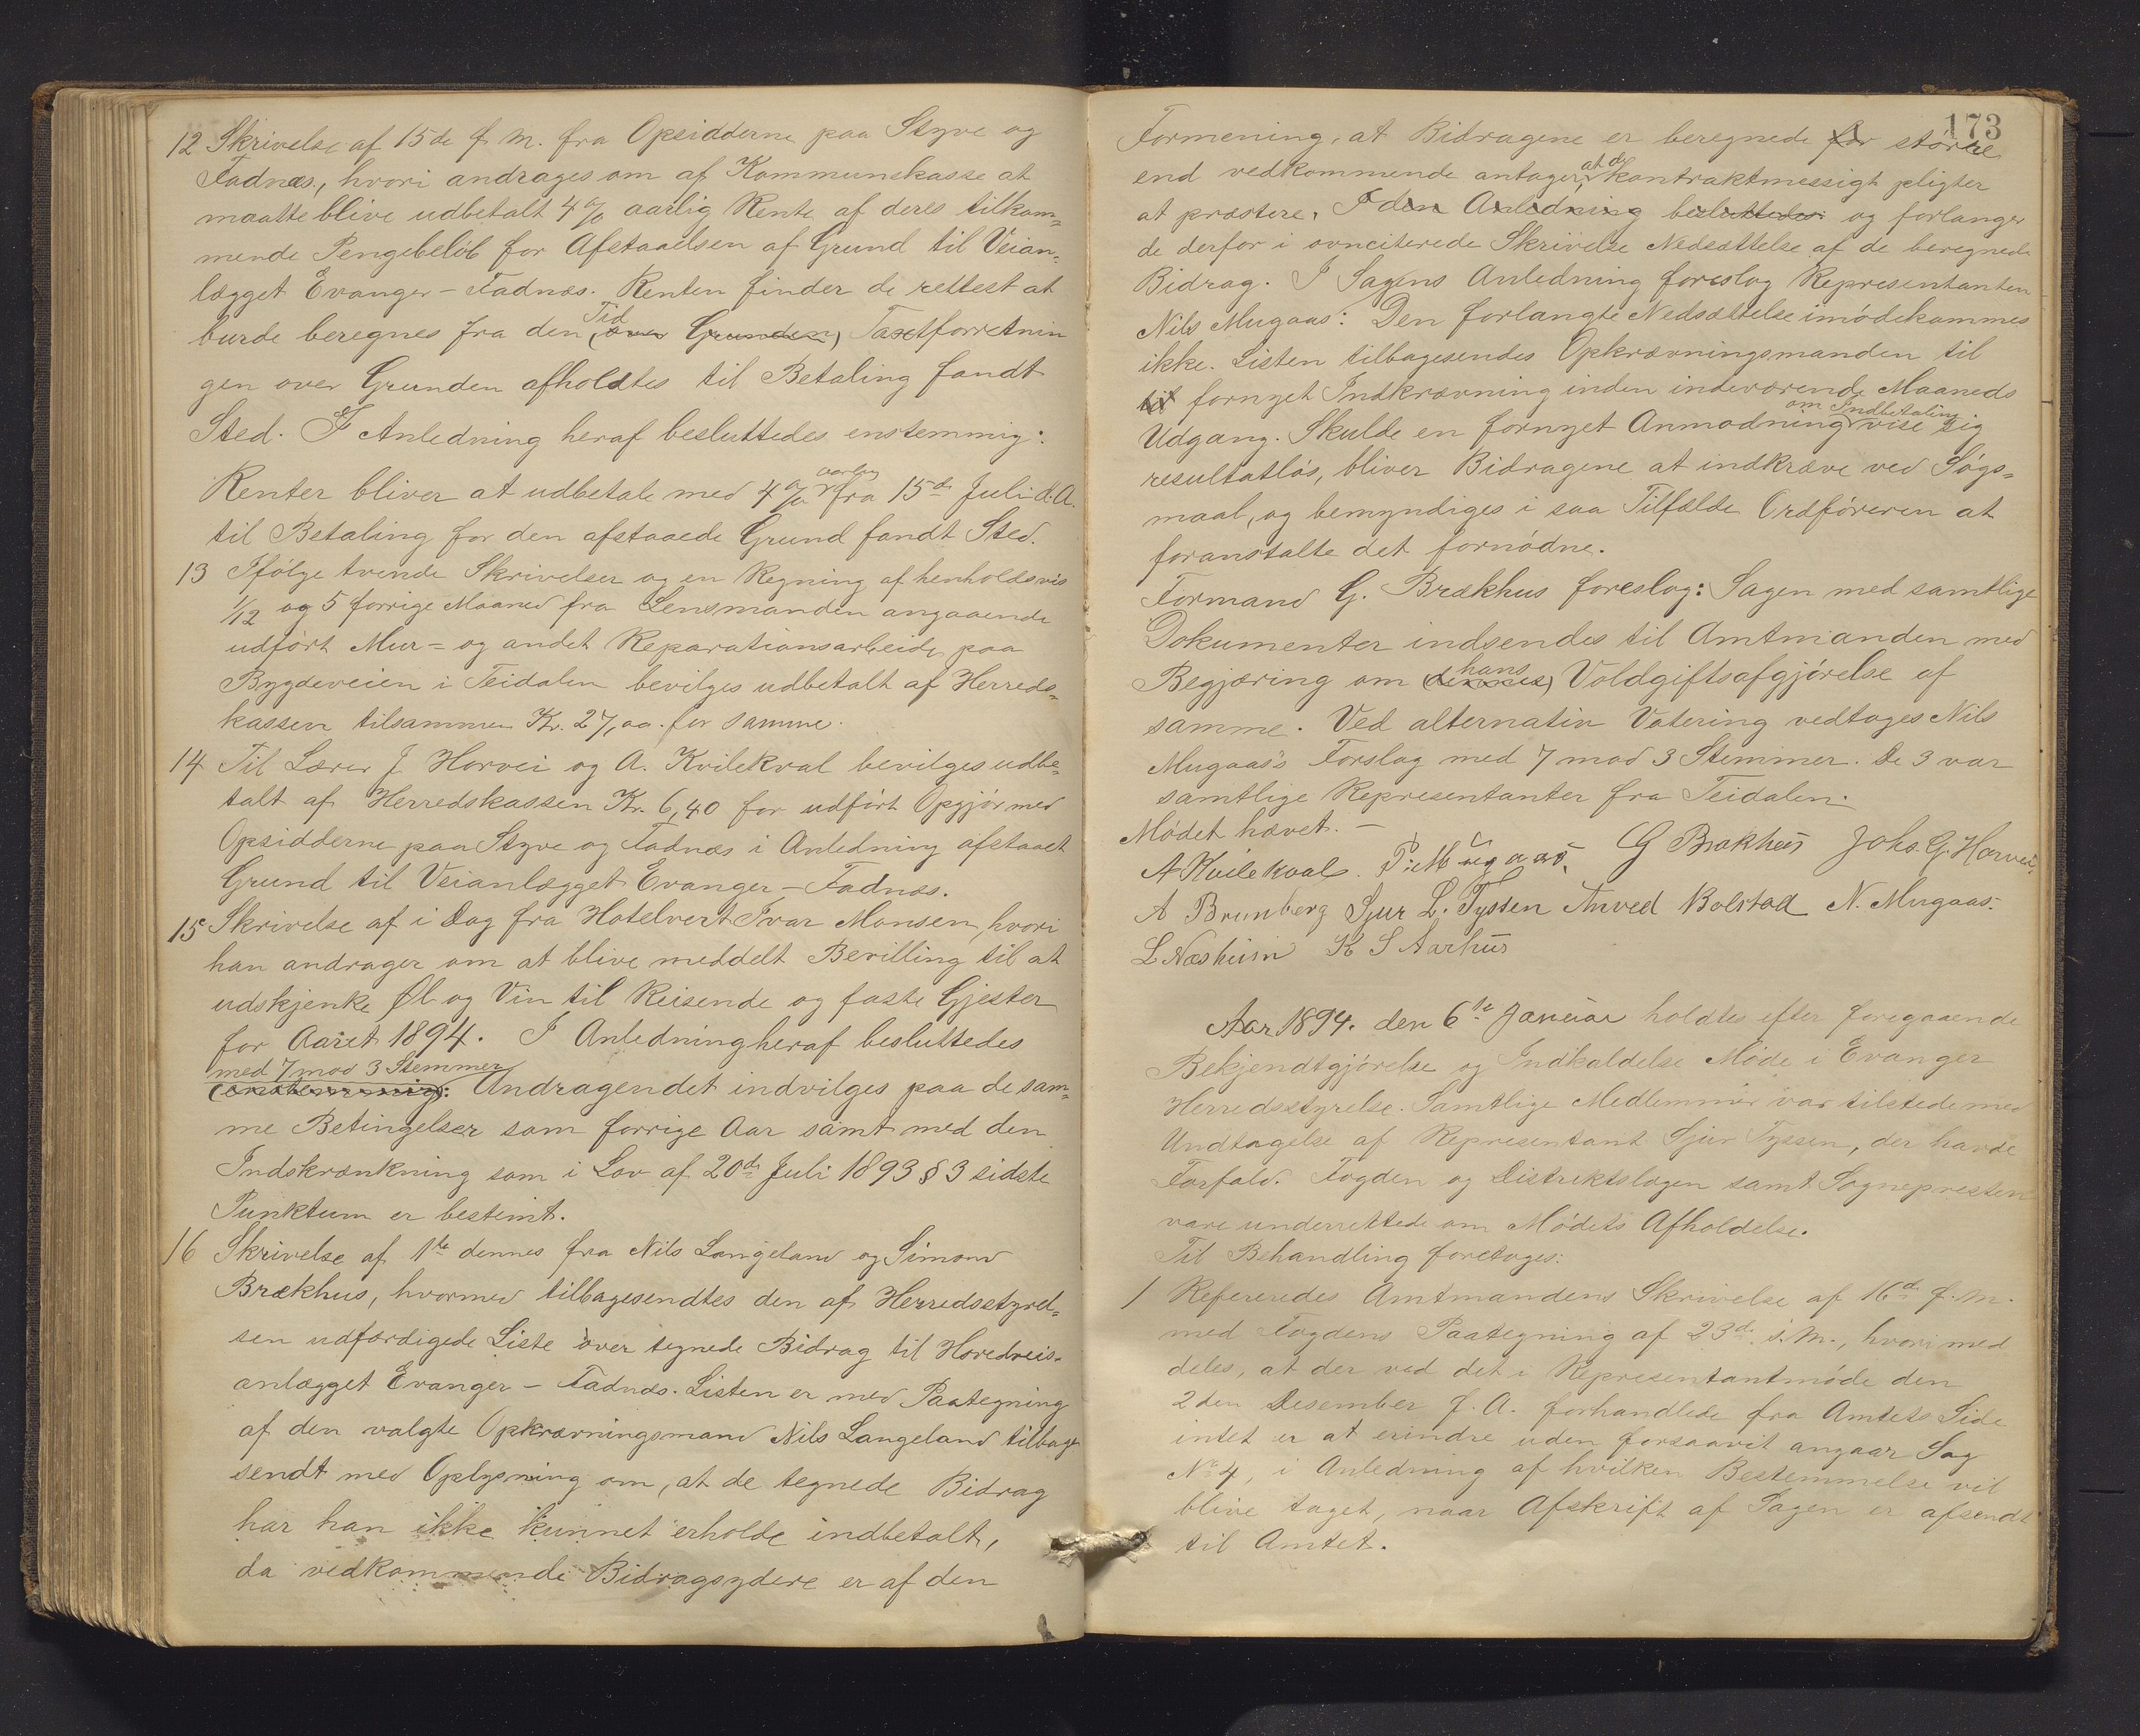 12 Skrivelse af 15de f. M. fra Opsidderne paa Styve og
Fadnæs, hvori andrages om af Kommunekasse at
maatte blive udbetalt 4 % aarlig Rente af deres tilkom=
mende Pengebeløb for Afstaaelsen af Grund til Veian=
lægget Evanger - Fadnæs. Renten finder de rettest at
burde beregnes fra den Tid (over Grunden) Taxtforretnin
gen over Grunden afholdtes til Betaling fandt
Sted. I Anledning heraf besluttedes enstemmig:
Renter bliver at udbetale med 4 % aarlig fra 15de Juli d. A.
til Betaling for den afstaaede Grund fandt Sted.
13 Ifølge tvende Skrivelser og en Regning af henholdsvis
1/12 og 5 forrige Maaned fra Lensmanden angaaende
udført Mur= og andet Reparationsarbeide paa
Bygdeveien i Teidalen bevilges udbetalt af Herreds=
kassen tilsammen Kr. 27,00 for samme.
14 Til Lærer J Horvei og A. Kvilekval bevilges udbe=
talt af Herredskassen Kr. 6,40 for udført Opgjør med
Opsidderne paa Styve og Fadnæs i Anledning afstaaet
Grund til Veianlægget Evanger - Fadnæs.
15 Skrivelse af i Dag fra Hotelvert Ivar Monsen, hvori
han andrager om at blive meddelt Bevilling til at
udskjenke Øl og Vin til Reisende og faste Gjester
for Aaret 1894. I Anledning heraf besluttedes
med 7 mod 3 Stemmer
(enstemmig): Andragendet indvilges paa de sam=
me Betingelser som forrige Aar samt med den
Indskrænkning som i Lov af 20de Juli 1893 § 3 sidste
Punktum er bestemt.
16 Skrivelse af 1ste dennes fra Nils Langeland og Simon
Brækhus, hvormed tilbagesendtes den af Herredsstyrel=
sen udfærdigede Liste over tegnede Bidrag til Hovedveis=
anlægget Evanger - Fadnæs. Listen er med Paategning
af den valgte Opkrævningsmand Nils Langeland tilbage
sendt med Oplysning om, at de tegnede Bidrag
har han ikke kunnet erholde indbetalt,
da vedkommende Bidragsydere er af den
173
Formening, at Bidragene er beregnede for større
end vedkommende antager, at de kontraktmessigt pligter
at præstere. I den Anledning besluttedes og forlanger
de derfor i ovnciterede Skrivelse Nedsættelse af de beregnede
Bidrag. I Sagens Anledning foreslog Representanten
Nils Mugaas: Den forlangte Nedsættelse imødekommes
ikke. Listen tilbagesendes Opkrævningsmanden til
til fornyet Indkrævning inden indeværende Maaneds
Udgang. Skulde en fornyet Anmodning om Indbetaling vise sig
resultatløs, bliver Bidragene at indkræve ved Søgs=
maal, og bemyndiges i saa Tilfælde Ordføreren at
foranstalte det fornødne.
Formand G. Brækhus foreslog: Sagen med samtlige
Dokumenter indsendes til Amtmanden med
Begjæring om (dennes) hans Voldgiftsafgjørelse af
samme. Ved alternativ Votering vedtoges Nils
Mugaas's Forslag med 7 mod 3 Stemmer. De 3 var
samtlige Representanter fra Teidalen.
Mødet hævet. -
A Kvilekvals. P. Mugaas. G Brækhus Johs. G. Horvei.
A Brunberg Sjur L. Tyssen Anved Bolstad N. Mugaas.
L Næsheim K S Aarhus
Aar 1894. den 6te Januar holdtes efter foregaaende
Bekjendtgjørelse og Indkaldelse Møde i Evanger
Herredsstyrelse. Samtlige Medlemmer var tilstede med
Undtagelse af Representant Sjur Tyssen, der havde
Forfald. Fogden og Distriktslægen samt Sognepresten
vare underrettede om Mødets Afholdelse.
Til Behandling foretoges:
1 Refereredes Amtmandens Skrivelse af 16de f. M.
med Fogdens Paategning af 23de s. M., hvori med
deles, at der ved det i Representantmøde den
2den Desember f. A. forhandlede fra Amtets Side
intet er at erindre uden forsaavit angaar Sag
No 4, i Anledning af hvilken Bestemmelse vil
blive taget, naar Afskrift af Sagen er afsendt
til Amtet.